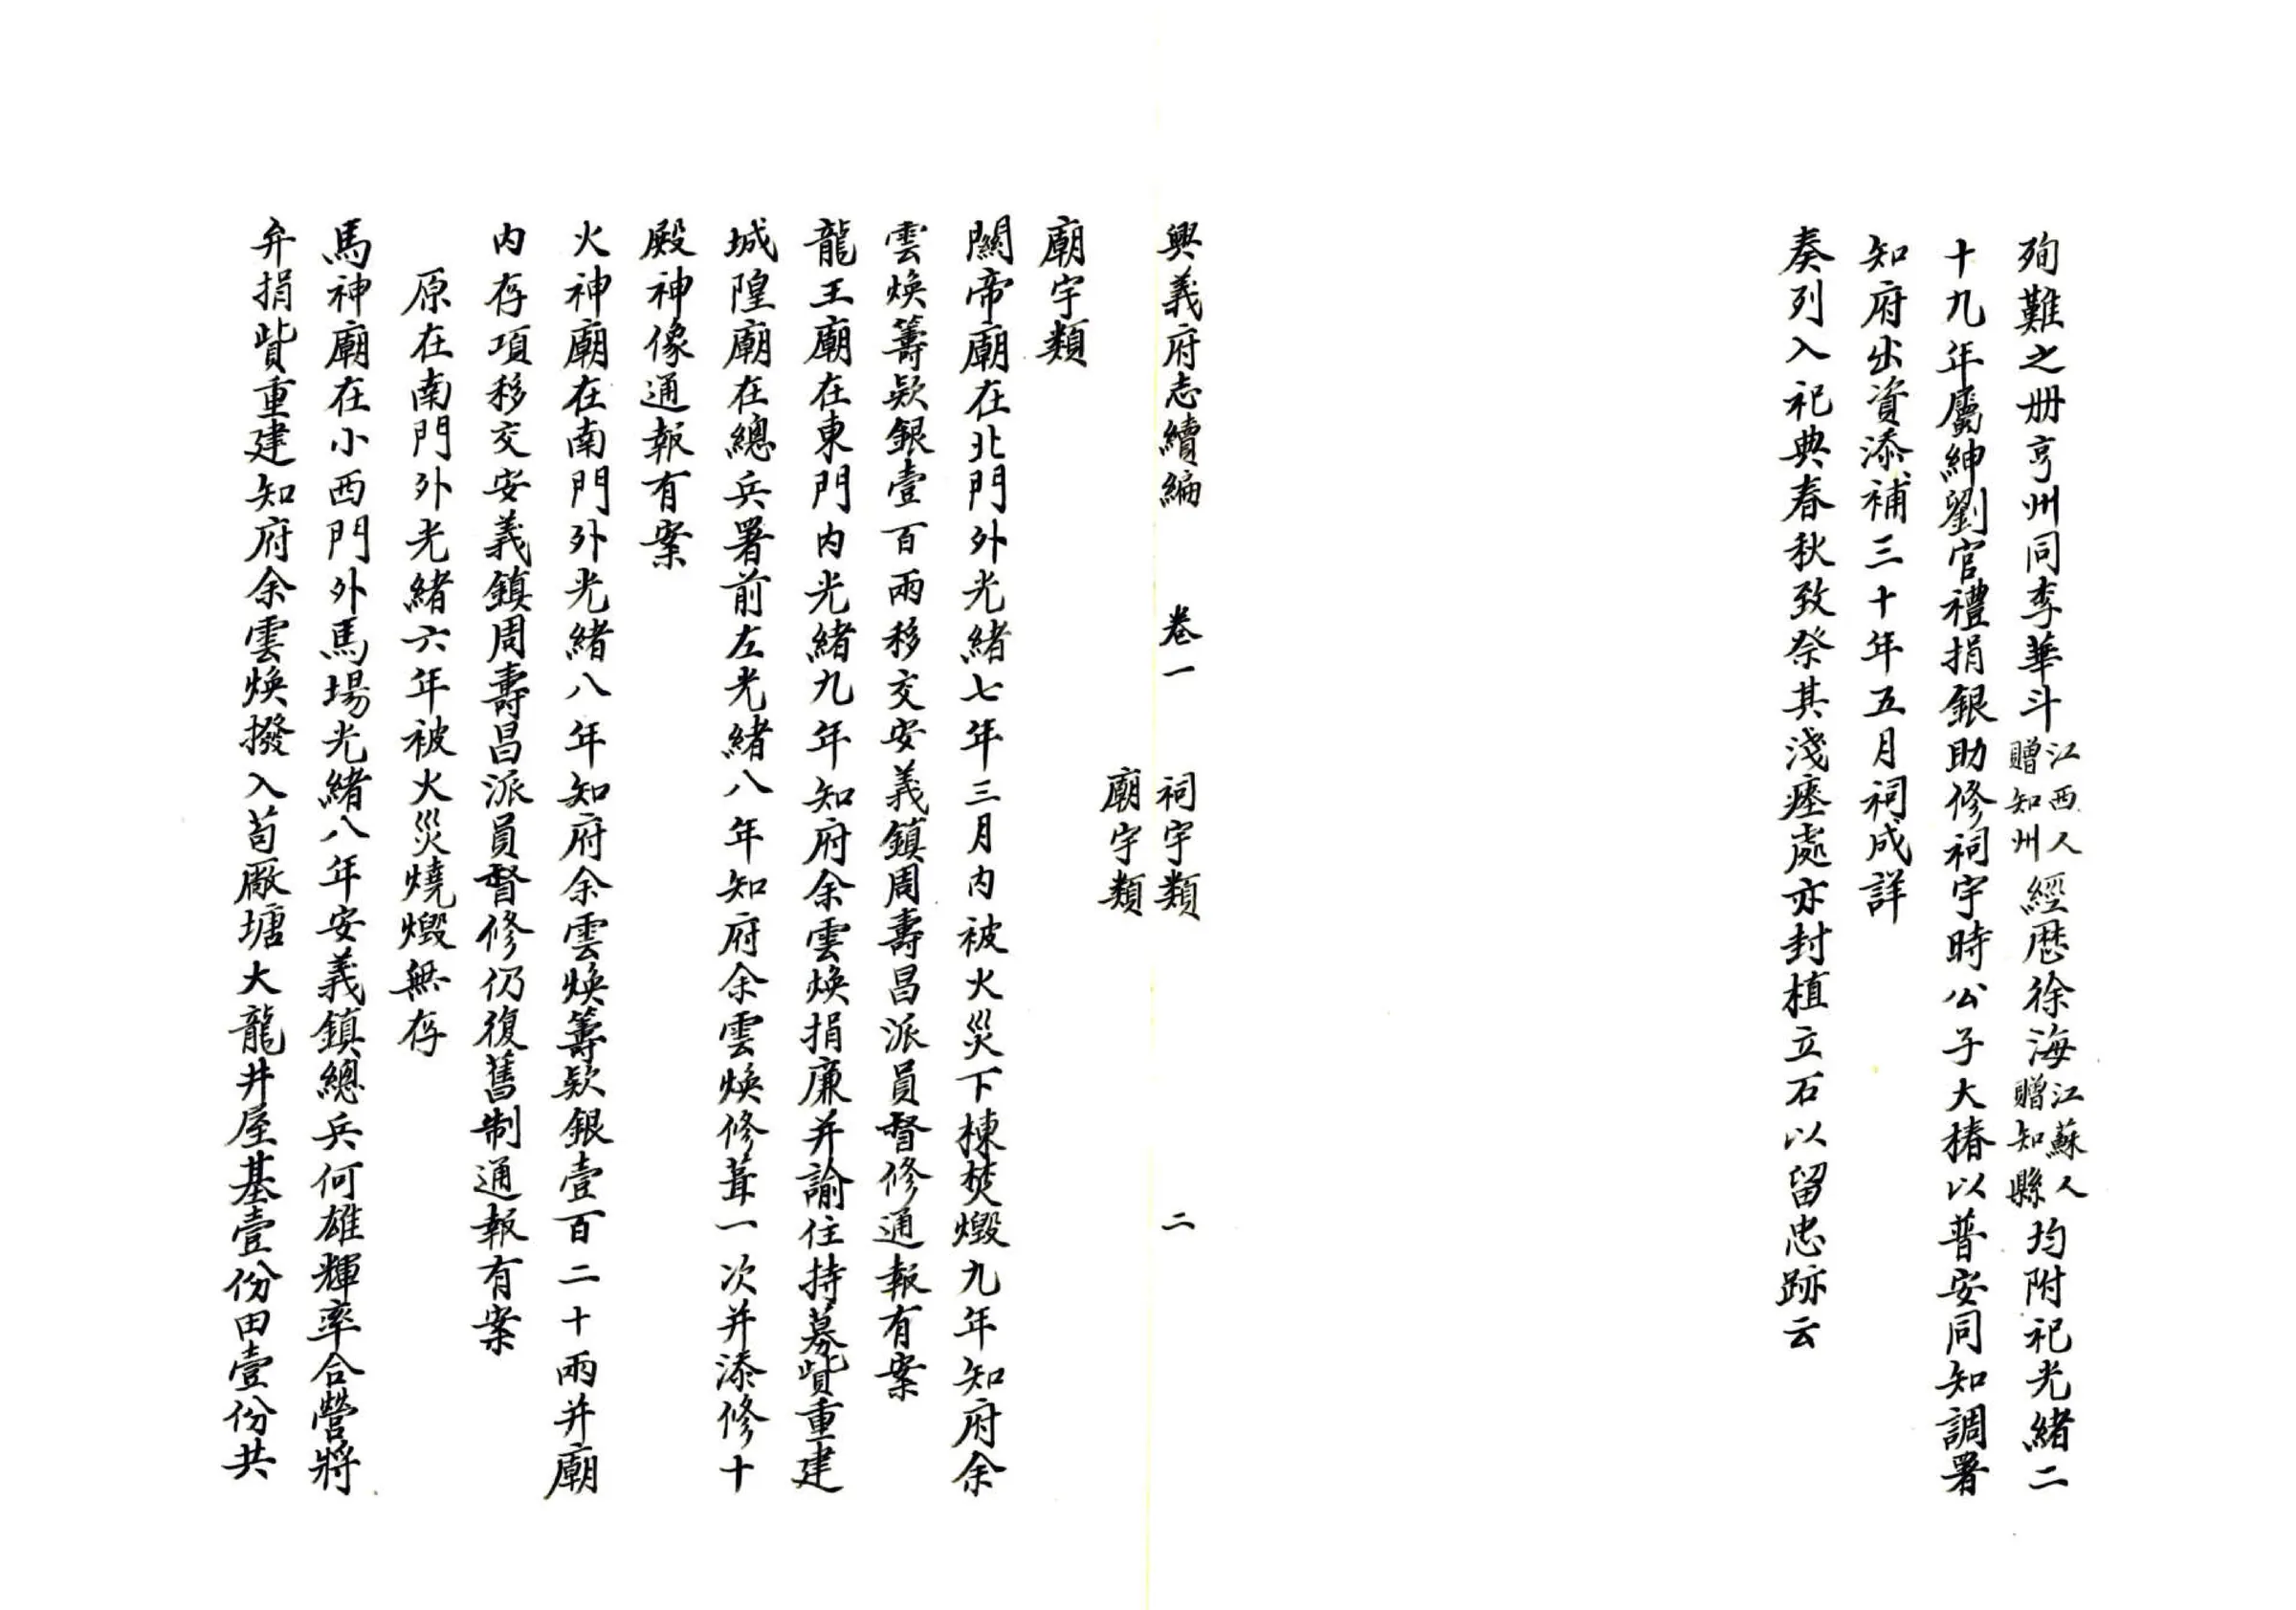 殉難之册亨州同李華斗江西人贈知州經歷徐海江蘇人贈知縣均附祀光緒二
十九年屬紳劉官禮捐銀助修祠宇時公子大椿以普安同知調署
知府出資添補三十年五月祠成詳
奏列入祀典春秋致祭其淺瘞處亦封植立石以留忠跡云
興義府志續編 卷一 祠宇類 二
廟宇類
廟宇類
關帝廟在北門外光緒七年三月內被火災下棟焚燬九年知府余
雲煥籌欵銀壹百兩移交安義鎮周壽昌派員督修通報有案
龍王廟在東門內光緒九年知府余雲煥捐廉并諭住持募貲重建
城隍廟在總兵署前左光緒八年知府余雲煥修葺一次并添修十
殿神像通報有案
火神廟在南門外光緒八年知府余雲煥籌欵銀壹百二十兩并廟
內存項移交安義鎮周壽昌派員督修仍復舊制通報有案
原在南門外光緒六年被火災燒燬無存
馬神廟在小西門外馬場光緒八年安義鎮總兵何雄輝率合營將
弁捐貲重建知府余雲煥撥入苟厰塘大龍井屋基壹份田壹份共